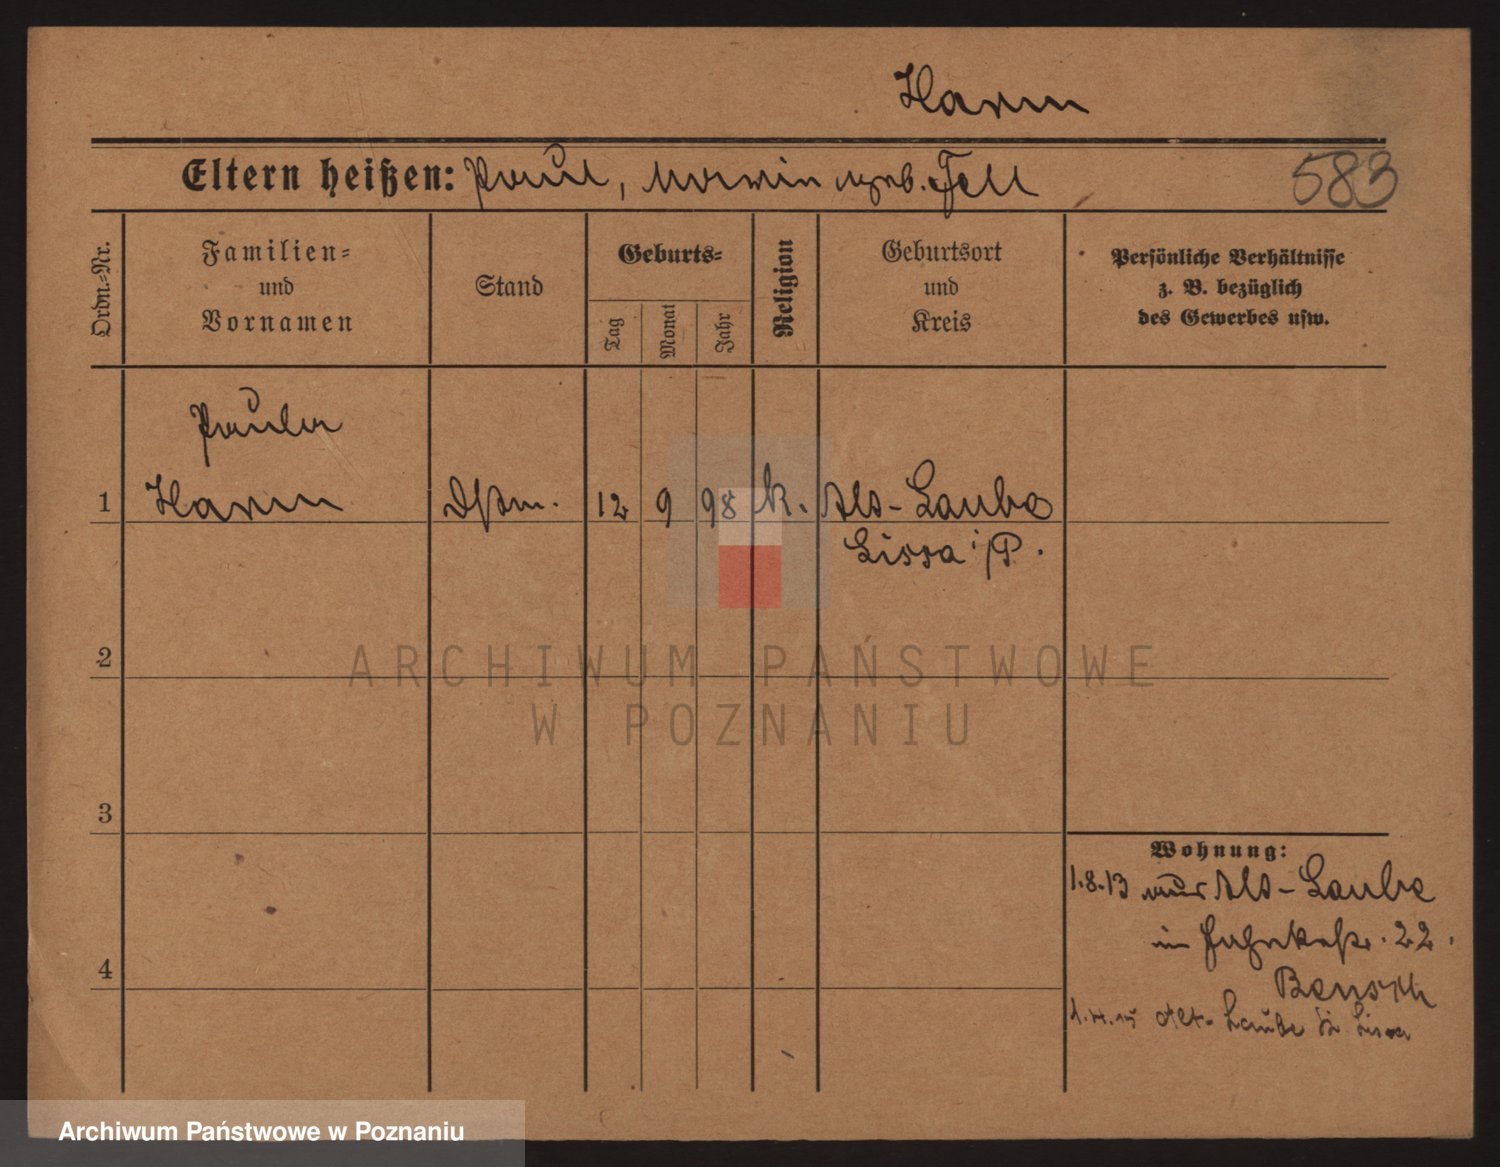 Hamm
Eltern heißen: Paul, Maria geb. Fell
583
Ordn.-Nr.
Familien-
und
Vornamen
Stand
Geburts-
Tag
Monat
Jahr
Religion
Geburtsort
und
Kreis
Persönliche Verhältnisse
z. B. bezüglich
des Gewerbes usw.
Paula
1 Hamm Dstm. 12 9 98 k. Alt-Laube
Lissa i/P.
2
3
4
Wohnung:
1.8.13 aus Alt-Laube
in 22.
Alt-Laube Lissa
ARCHIWUM PAŃSTWOWE
W POZNANIU
Archiwum Państwowe w Poznaniu